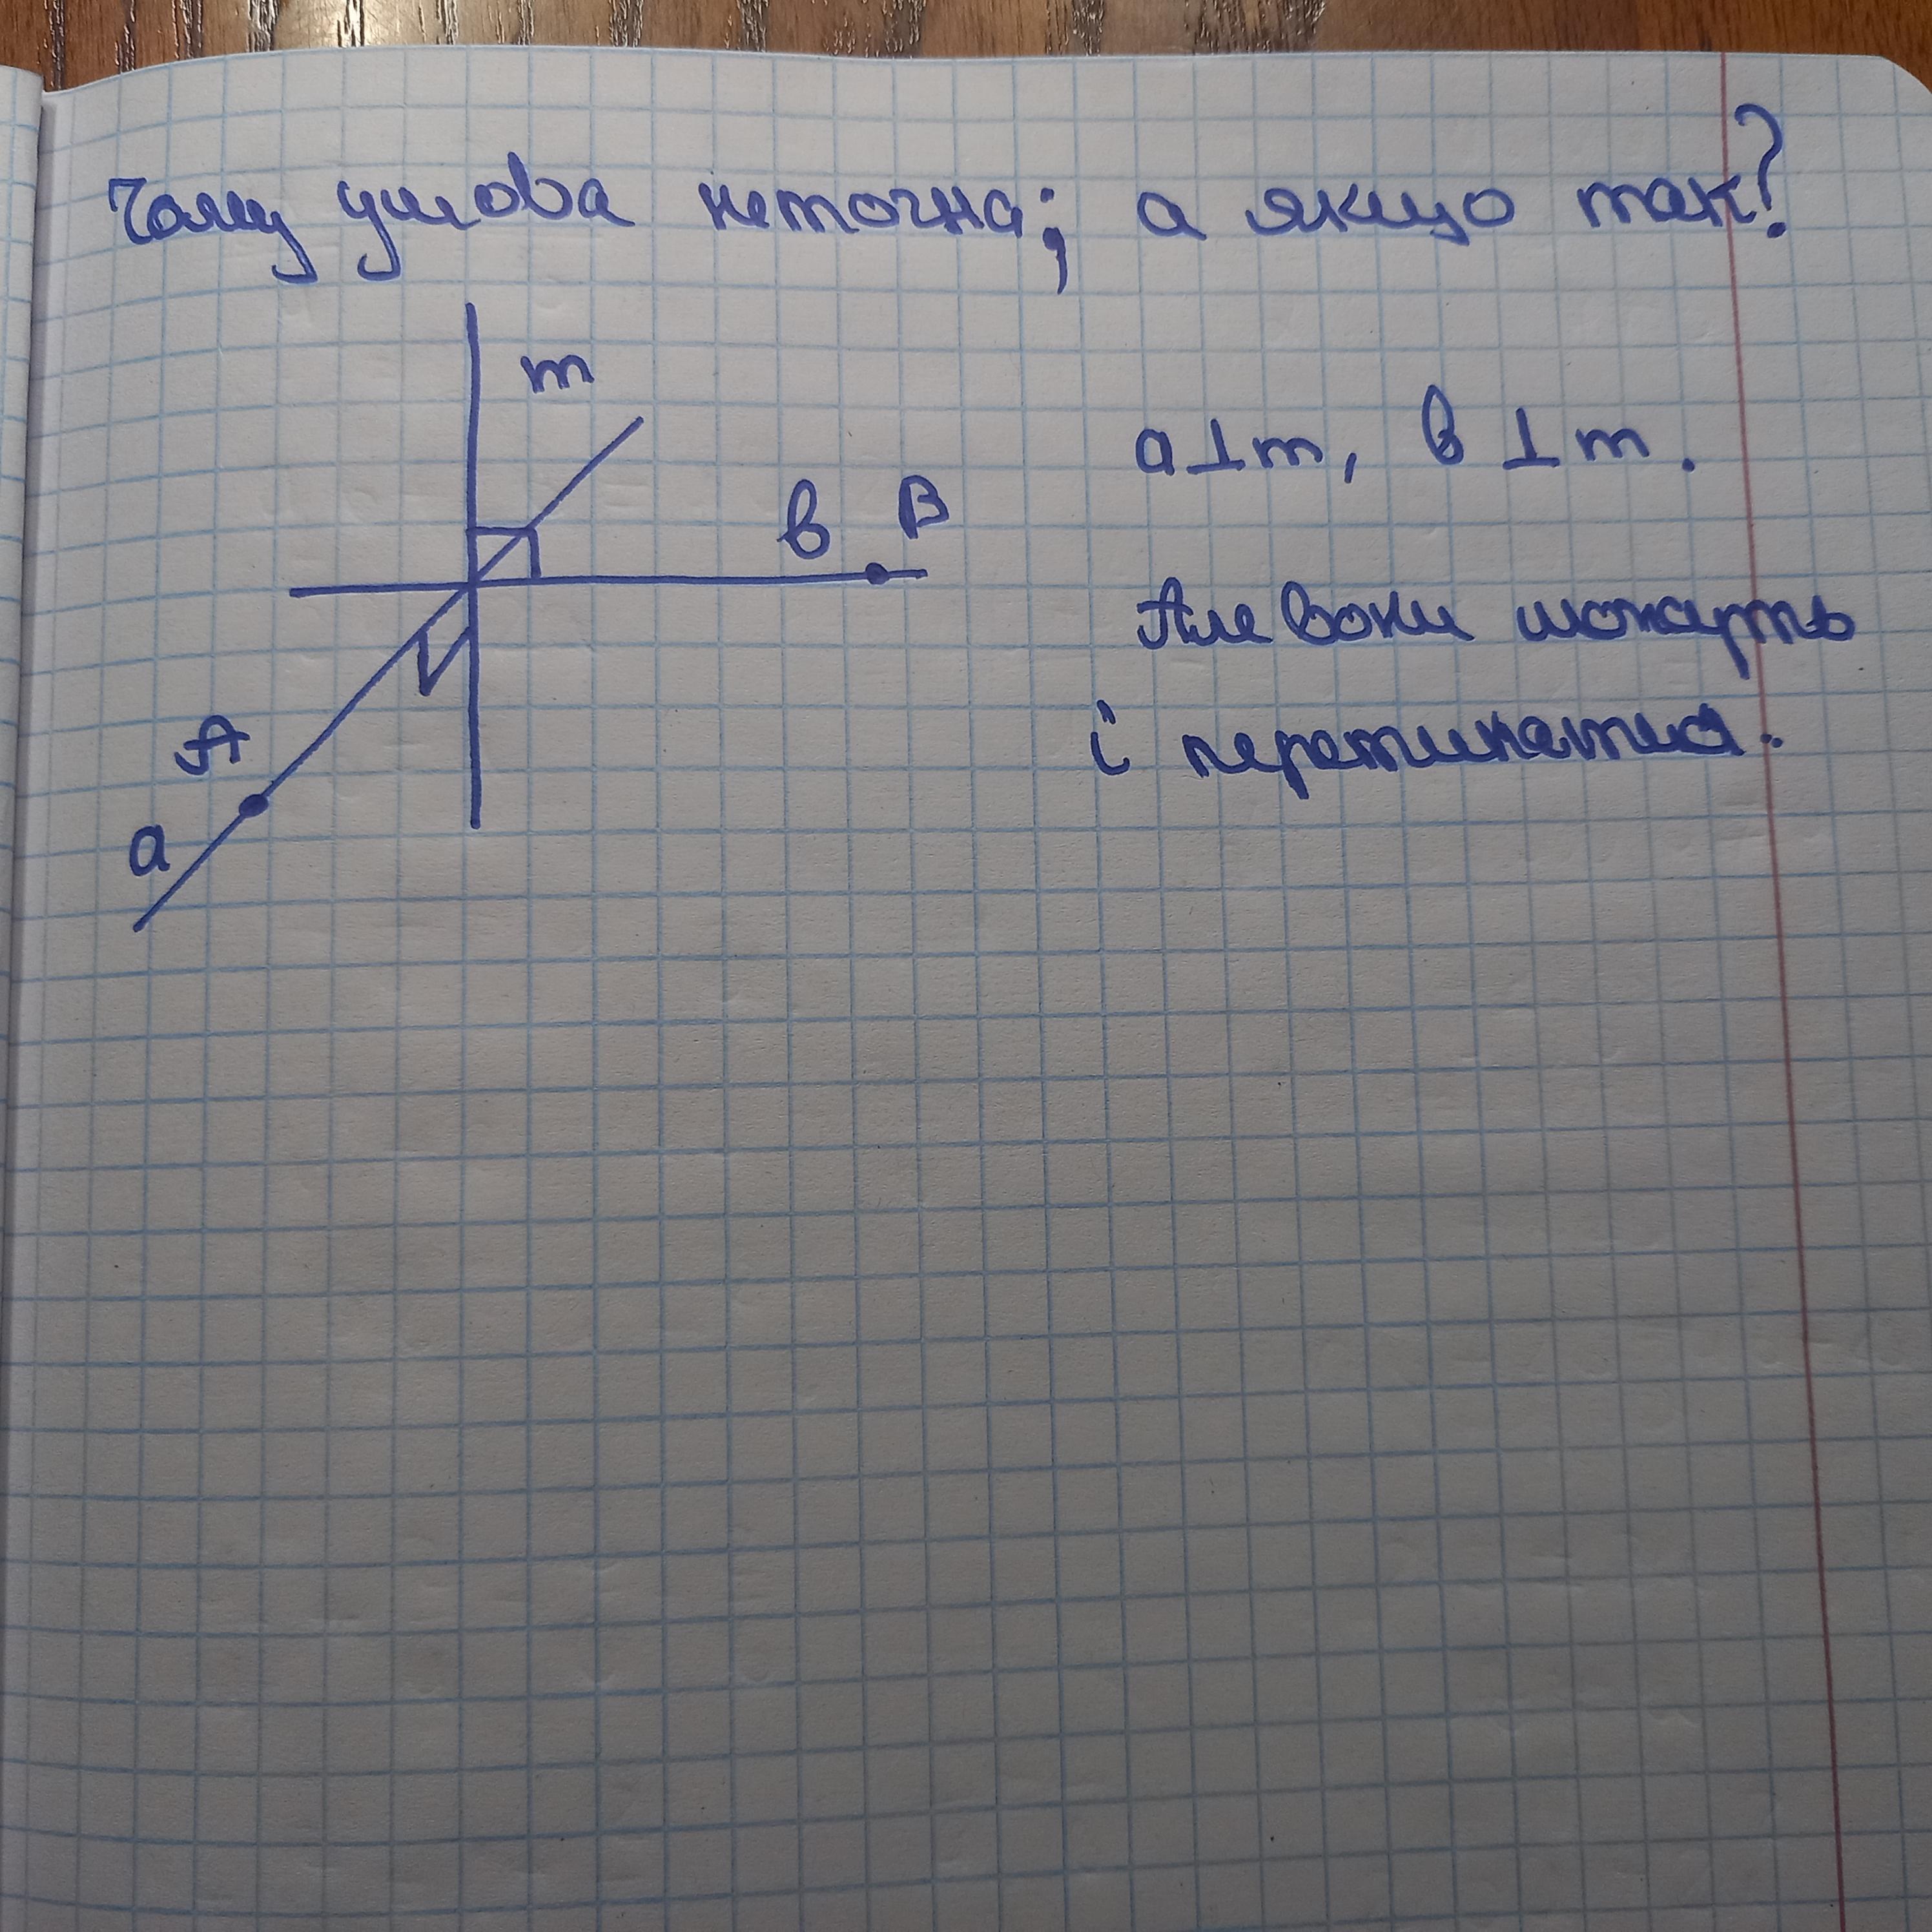 Чому умова неточна; а якщо так?
m
a⊥m, в⊥m.
в B
Але вони можуть
A
і перетинатися.
a